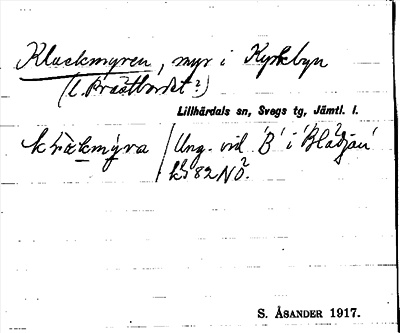 Klackmyren, myr i Kyrkbyn
(l. Prästbordet?)
Lillhärdals sn, Svegs tg, Jämtl. l.
Ung. vid 'B' i 'Blädjan'
82 NO.
S. ÅSANDER 1917.